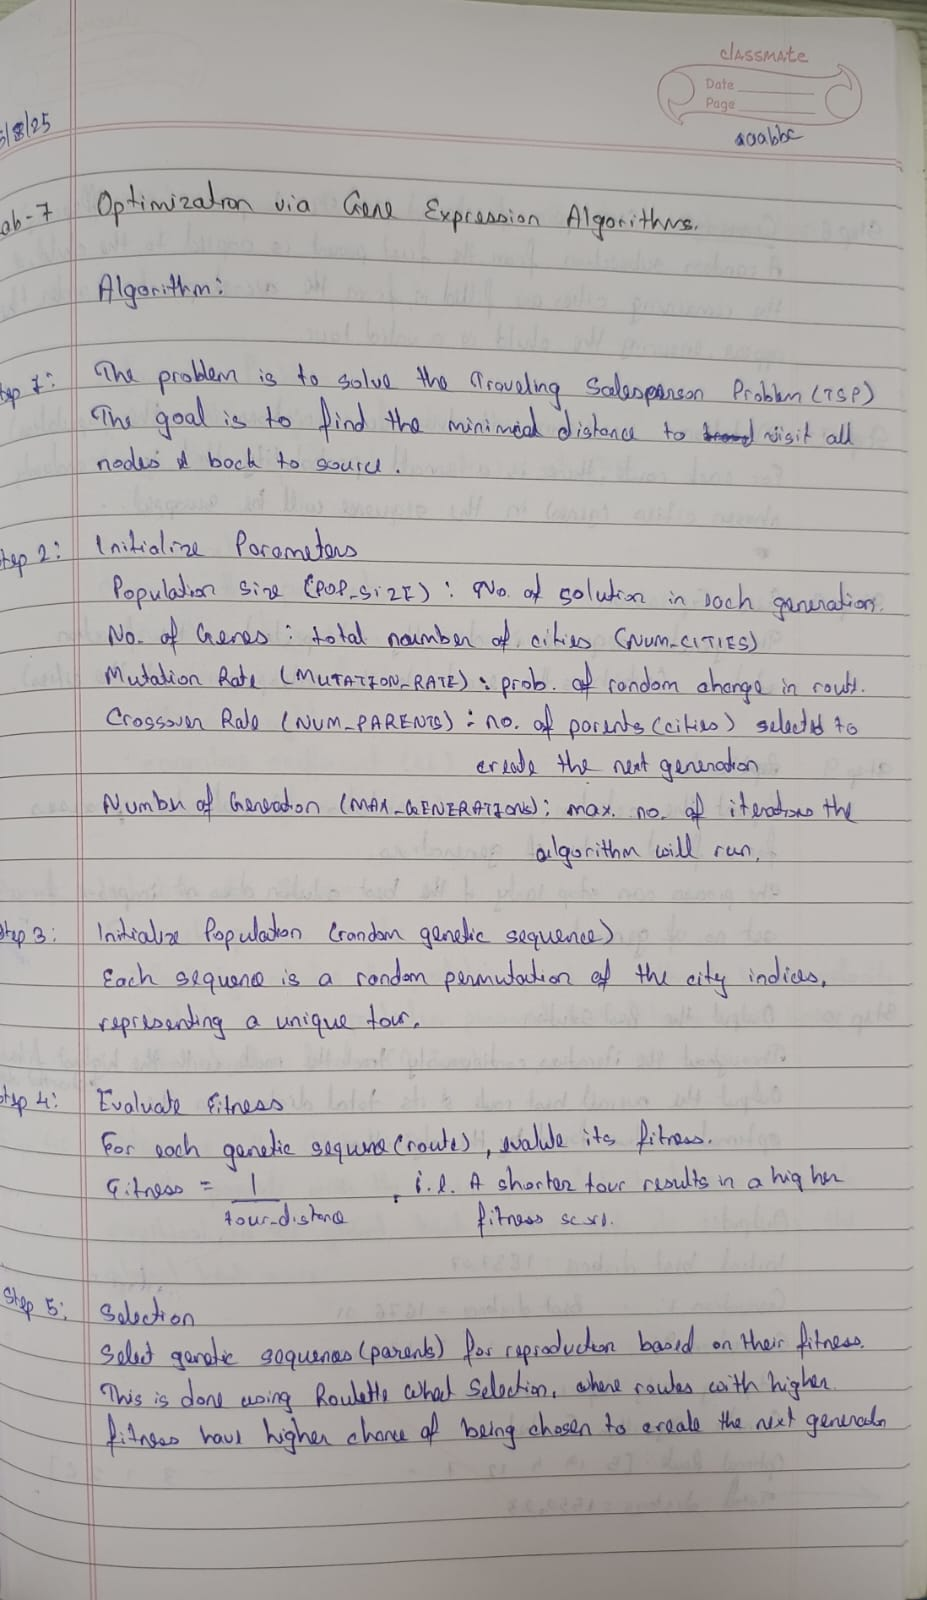 classmate
Date
Page
aaabbc
/8/25
ab-7 Optimization via Gene Expression Algorithms.
Algorithm:
tep 1: The problem is to solve the Traveling Salesperson Problem (TSP)
The goal is to find the minimal distance to visit all
nodes & back to source.
tep 2: Initialize Parameters
Population size (POP_SIZE) : No. of solution in each generation.
No. of Genes : total number of cities (NUM_CITIES)
Mutation Rate (MUTATION_RATE) : prob. of random change in route.
Crossover Rate (NUM_PARENTS) : no. of parents (cities) selected to
create the next generation.
Number of Generation (MAX_GENERATIONS) : max. no. of iterations the
algorithm will run.
Step 3: Initialize Population (random genetic sequence)
Each sequence is a random permutation of the city indices,
representing a unique tour.
Step 4: Evaluate Fitness
For each genetic sequence (route), evalute its fitness.
Fitness = 1 / tour_distance , i.e. A shorter tour results in a higher
fitness score.
Step 5: Selection
Select genetic sequences (parents) for reproduction based on their fitness.
This is done using Roulette Wheel Selection, where routes with higher
fitness have higher chance of being chosen to create the next generation